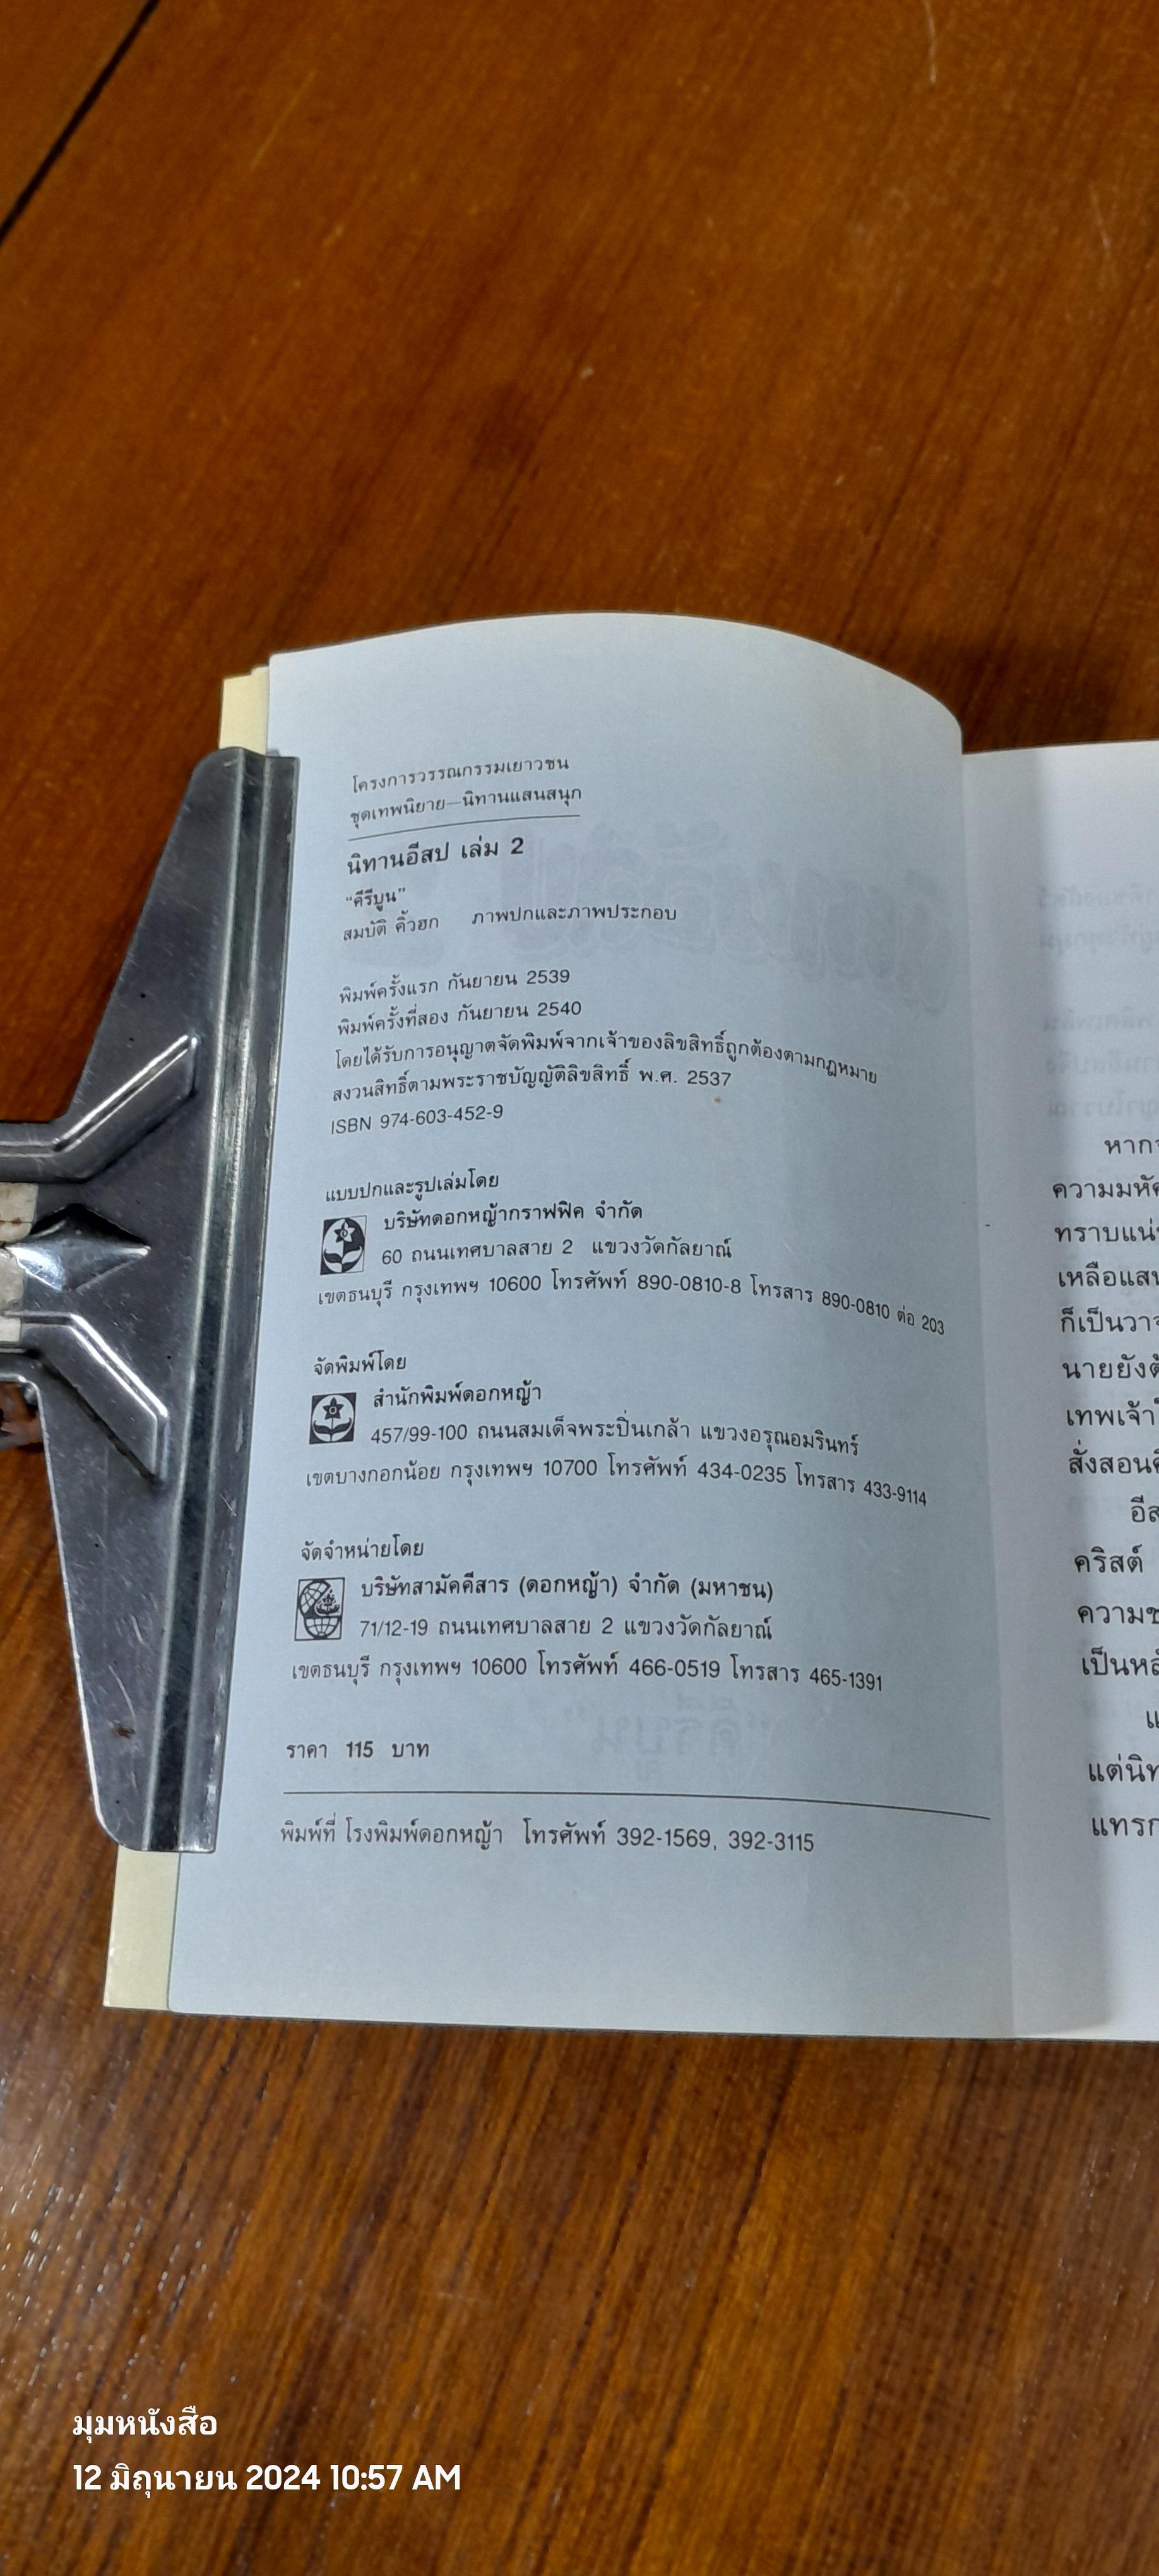 โครงการวรรณกรรมเยาวชน
ชุดเทพนิยาย—นิทานแสนสนุก
นิทานอีสป เล่ม 2
“คีรีบูน”
สมบัติ คิ้วฮก ภาพปกและภาพประกอบ
พิมพ์ครั้งแรก กันยายน 2539
พิมพ์ครั้งที่สอง กันยายน 2540
โดยได้รับการอนุญาตจัดพิมพ์จากเจ้าของลิขสิทธิ์ถูกต้องตามกฎหมาย
สงวนสิทธิ์ตามพระราชบัญญัติลิขสิทธิ์ พ.ศ. 2537
ISBN 974-603-452-9
แบบปกและรูปเล่มโดย
บริษัทดอกหญ้ากราฟฟิค จำกัด
60 ถนนเทศบาลสาย 2 แขวงวัดกัลยาณ์
เขตธนบุรี กรุงเทพฯ 10600 โทรศัพท์ 890-0810-8 โทรสาร 890-0810 ต่อ 203
จัดพิมพ์โดย
สำนักพิมพ์ดอกหญ้า
457/99-100 ถนนสมเด็จพระปิ่นเกล้า แขวงอรุณอมรินทร์
เขตบางกอกน้อย กรุงเทพฯ 10700 โทรศัพท์ 434-0235 โทรสาร 433-9114
จัดจำหน่ายโดย
บริษัทสามัคคีสาร (ดอกหญ้า) จำกัด (มหาชน)
71/12-19 ถนนเทศบาลสาย 2 แขวงวัดกัลยาณ์
เขตธนบุรี กรุงเทพฯ 10600 โทรศัพท์ 466-0519 โทรสาร 465-1391
ราคา 115 บาท
พิมพ์ที่ โรงพิมพ์ดอกหญ้า โทรศัพท์ 392-1569, 392-3115
หาก
ความมหั
ทราบแน่
เหลือแส
ก็เป็นวา
นายยัง
เทพเจ้า
สั่งสอน
อีส
คริสต์
ความ
เป็นห
แ
แต่นิ
แทรก
มุมหนังสือ
12 มิถุนายน 2024 10:57 AM